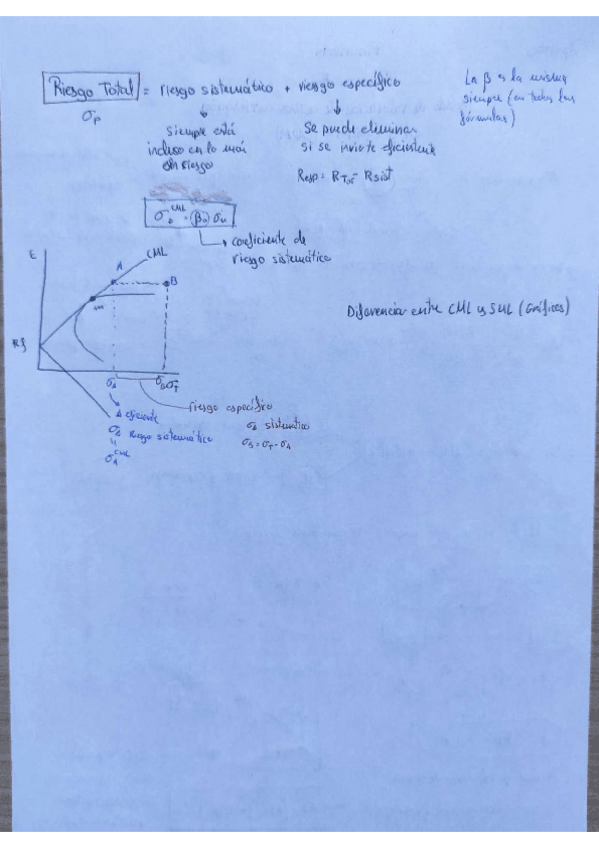 Riesgo Total = riesgo sistemático + riesgo específico
σp
siempre está
incluso en lo más
sin riesgo
Se puede eliminar
si se invierte eficientemente
Resp = R Tot - R Sist
La β es la misma
siempre (en todas las
fórmulas)
σ CML = β σM
coeficiente de
riesgo sistemático
E
CML
A
B
M
Rf
σA
σB σT
riesgo específico
A eficiente
σB Riesgo sistemático
σA CML
σB sistemático
σB = σT - σA
Diferencia entre CML y SML (Gráficos)